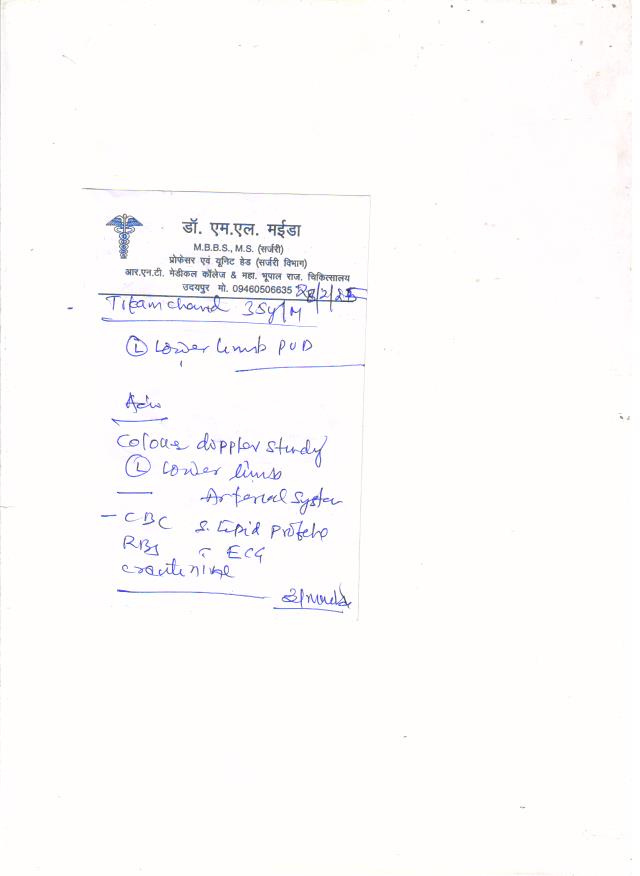 डॉ. एम.एल. मईडा
M.B.B.S., M.S. (सर्जरी)
प्रोफेसर एवं यूनिट हेड (सर्जरी विभाग)
आर.एन.टी. मेडीकल कॉलेज & महा. भूपाल राज. चिकित्सालय
उदयपुर मो. 09460506635 28/2/25
Tikamchand 35y/M
Ⓛ Lower limb PVD
Adv
Colour doppler study
Ⓛ Lower limb
Arterial system
- CBC S. Lipid Profile
RBS ECG
Creatinine